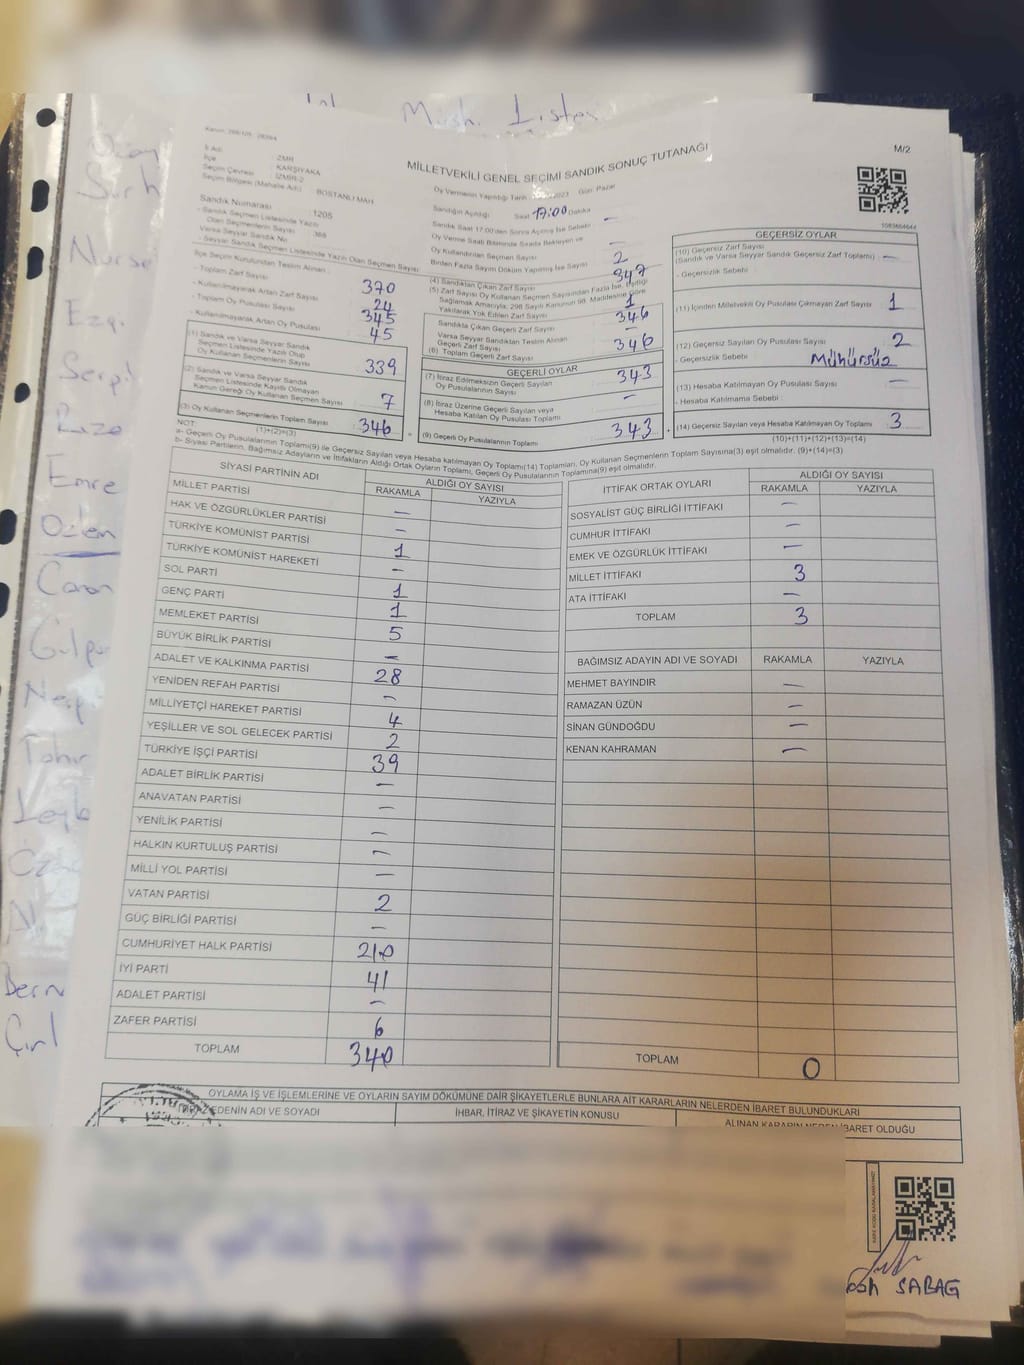 Mush. Listesi
M/2
MİLLETVEKİLİ GENEL SEÇİMİ SANDIK SONUÇ TUTANAĞI
İl Adı : İZMİR
İlçe : KARŞIYAKA
Seçim Çevresi : İZMİR-2
Seçim Bölgesi (Mahalle Adı) : BOSTANLI MAH
Oy Vermenin Yapıldığı Tarih 2023 Gün: Pazar
Sandığın Açıldığı Saat 17:00 Dakika
Sandık Saat 17:00'den Sonra Açılmış İse Sebebi : —
Oy Verme Saati Bitiminde Sırada Bekleyen ve
Oy Kullandırılan Seçmen Sayısı —
Birden Fazla Sayım Döküm Yapılmış İse Sayısı 2
Sandık Numarası : 1205
- Sandık Seçmen Listesinde Yazılı
Olan Seçmenlerin Sayısı : 368
Varsa Seyyar Sandık No
- Seyyar Sandık Seçmen Listesinde Yazılı Olan Seçmen Sayısı
İlçe Seçim Kurulundan Teslim Alınan
- Toplam Zarf Sayısı 370
- Kullanılmayarak Artan Zarf Sayısı 24
- Toplam Oy Pusulası Sayısı 345
- Kullanılmayarak Artan Oy Pusulası 45
(1) Sandık ve Varsa Seyyar Sandık
Seçmen Listesinde Yazılı Olup
Oy Kullanan Seçmenlerin Sayısı 339
(2) Sandık ve Varsa Seyyar Sandık
Seçmen Listesinde Kayıtlı Olmayan
Kanun Gereği Oy Kullanan Seçmen Sayısı 7
(3) Oy Kullanan Seçmenlerin Toplam Sayısı 346
(1)+(2)=(3)
(4) Sandıktan Çıkan Zarf Sayısı 347
(5) Zarf Sayısı Oy Kullanan Seçmen Sayısından Fazla İse, Eşitliği
Sağlamak Amacıyla, 298 Sayılı Kanunun 98. Maddesine Göre
Yakılarak Yok Edilen Zarf Sayısı 1
Sandıkta Çıkan Geçerli Zarf Sayısı 346
Varsa Seyyar Sandıktan Teslim Alınan
Geçerli Zarf Sayısı —
(6) Toplam Geçerli Zarf Sayısı 346
GEÇERLİ OYLAR
(7) İtiraz Edilmeksizin Geçerli Sayılan
Oy Pusulalarının Sayısı 343
(8) İtiraz Üzerine Geçerli Sayılan veya
Hesaba Katılan Oy Pusulası Toplamı —
(9) Geçerli Oy Pusulalarının Toplamı 343
GEÇERSİZ OYLAR
(10) Geçersiz Zarf Sayısı
(Sandık ve Varsa Seyyar Sandık Geçersiz Zarf Toplamı) : —
- Geçersizlik Sebebi :
(11) İçinden Milletvekili Oy Pusulası Çıkmayan Zarf Sayısı 1
(12) Geçersiz Sayılan Oy Pusulası Sayısı 2
- Geçersizlik Sebebi : Mühürsüz
(13) Hesaba Katılmayan Oy Pusulası Sayısı —
- Hesaba Katılmama Sebebi :
(14) Geçersiz Sayılan veya Hesaba Katılmayan Oy Toplamı 3
(10)+(11)+(12)+(13)=(14)
NOT:
a- Geçerli Oy Pusulalarının Toplamı(9) ile Geçersiz Sayılan veya Hesaba katılmayan Oy Toplamı(14) Toplamları, Oy Kullanan Seçmenlerin Toplam Sayısına(3) eşit olmalıdır. (9)+(14)=(3)
b- Siyasi Partilerin, Bağımsız Adayların ve İttifakların Aldığı Ortak Oyların Toplamı, Geçerli Oy Pusulalarının Toplamına(9) eşit olmalıdır.
SİYASİ PARTİNİN ADI ALDIĞI OY SAYISI
RAKAMLA YAZIYLA
MİLLET PARTİSİ —
HAK VE ÖZGÜRLÜKLER PARTİSİ —
TÜRKİYE KOMÜNİST PARTİSİ 1
TÜRKİYE KOMÜNİST HAREKETİ —
SOL PARTİ 1
GENÇ PARTİ 1
MEMLEKET PARTİSİ 5
BÜYÜK BİRLİK PARTİSİ —
ADALET VE KALKINMA PARTİSİ 28
YENİDEN REFAH PARTİSİ —
MİLLİYETÇİ HAREKET PARTİSİ 4
YEŞİLLER VE SOL GELECEK PARTİSİ 2
TÜRKİYE İŞÇİ PARTİSİ 39
ADALET BİRLİK PARTİSİ —
ANAVATAN PARTİSİ —
YENİLİK PARTİSİ —
HALKIN KURTULUŞ PARTİSİ —
MİLLİ YOL PARTİSİ —
VATAN PARTİSİ 2
GÜÇ BİRLİĞİ PARTİSİ —
CUMHURİYET HALK PARTİSİ 210
İYİ PARTİ 41
ADALET PARTİSİ —
ZAFER PARTİSİ 6
TOPLAM 340
İTTİFAK ORTAK OYLARI ALDIĞI OY SAYISI
RAKAMLA YAZIYLA
SOSYALİST GÜÇ BİRLİĞİ İTTİFAKI —
CUMHUR İTTİFAKI —
EMEK VE ÖZGÜRLÜK İTTİFAKI —
MİLLET İTTİFAKI 3
ATA İTTİFAKI —
TOPLAM 3
BAĞIMSIZ ADAYIN ADI VE SOYADI RAKAMLA YAZIYLA
MEHMET BAYINDIR —
RAMAZAN ÜZÜN —
SİNAN GÜNDOĞDU —
KENAN KAHRAMAN —
TOPLAM 0
OYLAMA İŞ VE İŞLEMLERİNE VE OYLARIN SAYIM DÖKÜMÜNE DAİR ŞİKAYETLERLE BUNLARA AİT KARARLARIN NELERDEN İBARET BULUNDUKLARI
EDENİN ADI VE SOYADI İHBAR, İTİRAZ VE ŞİKAYETİN KONUSU ALINAN KARARIN NEDEN İBARET OLDUĞU
SABAG
Nurse
Ezgi
Serpil
Emre
Özlem
Caner